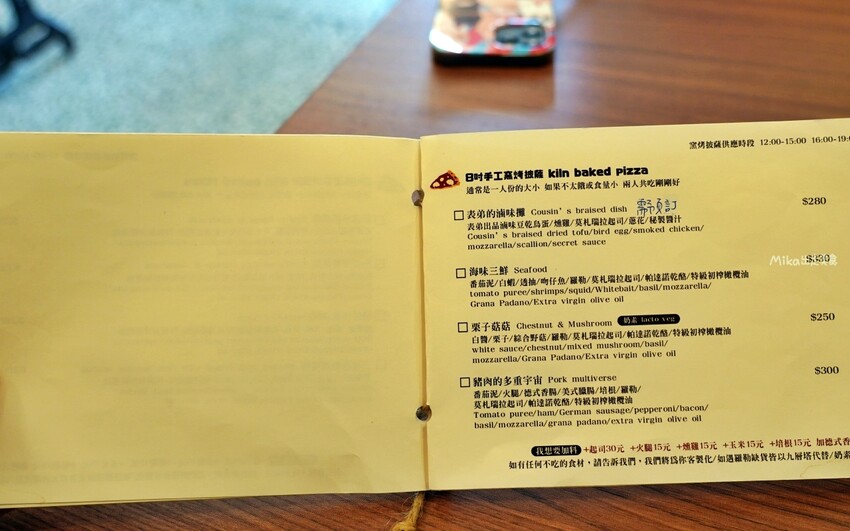 窯烤披薩供應時段 12:00-15:00 16:00-19:0
8吋手工窯烤披薩 kiln baked pizza
通常是一人份的大小 如果不太餓或食量小 兩人共吃剛剛好
表弟的滷味攤 Cousin's braised dish 需預訂 $280
表弟出品滷味豆乾鳥蛋/燻雞/莫札瑞拉起司/蔥花/秘製醬汁
Cousin's braised dried tofu/bird egg/smoked chicken/
mozzarella/scallion/secret sauce
海味三鮮 Seafood $330
番茄泥/白蝦/透抽/吻仔魚/羅勒/莫札瑞拉起司/帕達諾乾酪/特級初榨橄欖油
tomato puree/shrimps/squid/Whitebait/basil/mozzarella/
Grana Padano/Extra virgin olive oil
栗子菇菇 Chestnut & Mushroom 奶素 lacto veg $250
白醬/栗子/綜合野菇/羅勒/莫札瑞拉起司/帕達諾乾酪/特級初榨橄欖油
white sauce/chestnut/mixed mushroom/basil/
mozzarella/Grana Padano/Extra virgin olive oil
豬肉的多重宇宙 Pork multiverse $300
番茄泥/火腿/德式香腸/美式臘腸/培根/羅勒/
莫札瑞拉起司/帕達諾乾酪/特級初榨橄欖油
Tomato puree/ham/German sausage/pepperoni/bacon/
basil/mozzarella/grana padano/extra virgin olive oil
我想要加料 +起司30元 +火腿15元 +燻雞15元 +玉米15元 +培根15元 加德式香
如有任何不吃的食材，請告訴我們，我們將為你客製化/如遇羅勒缺貨皆以九層塔代替/奶素